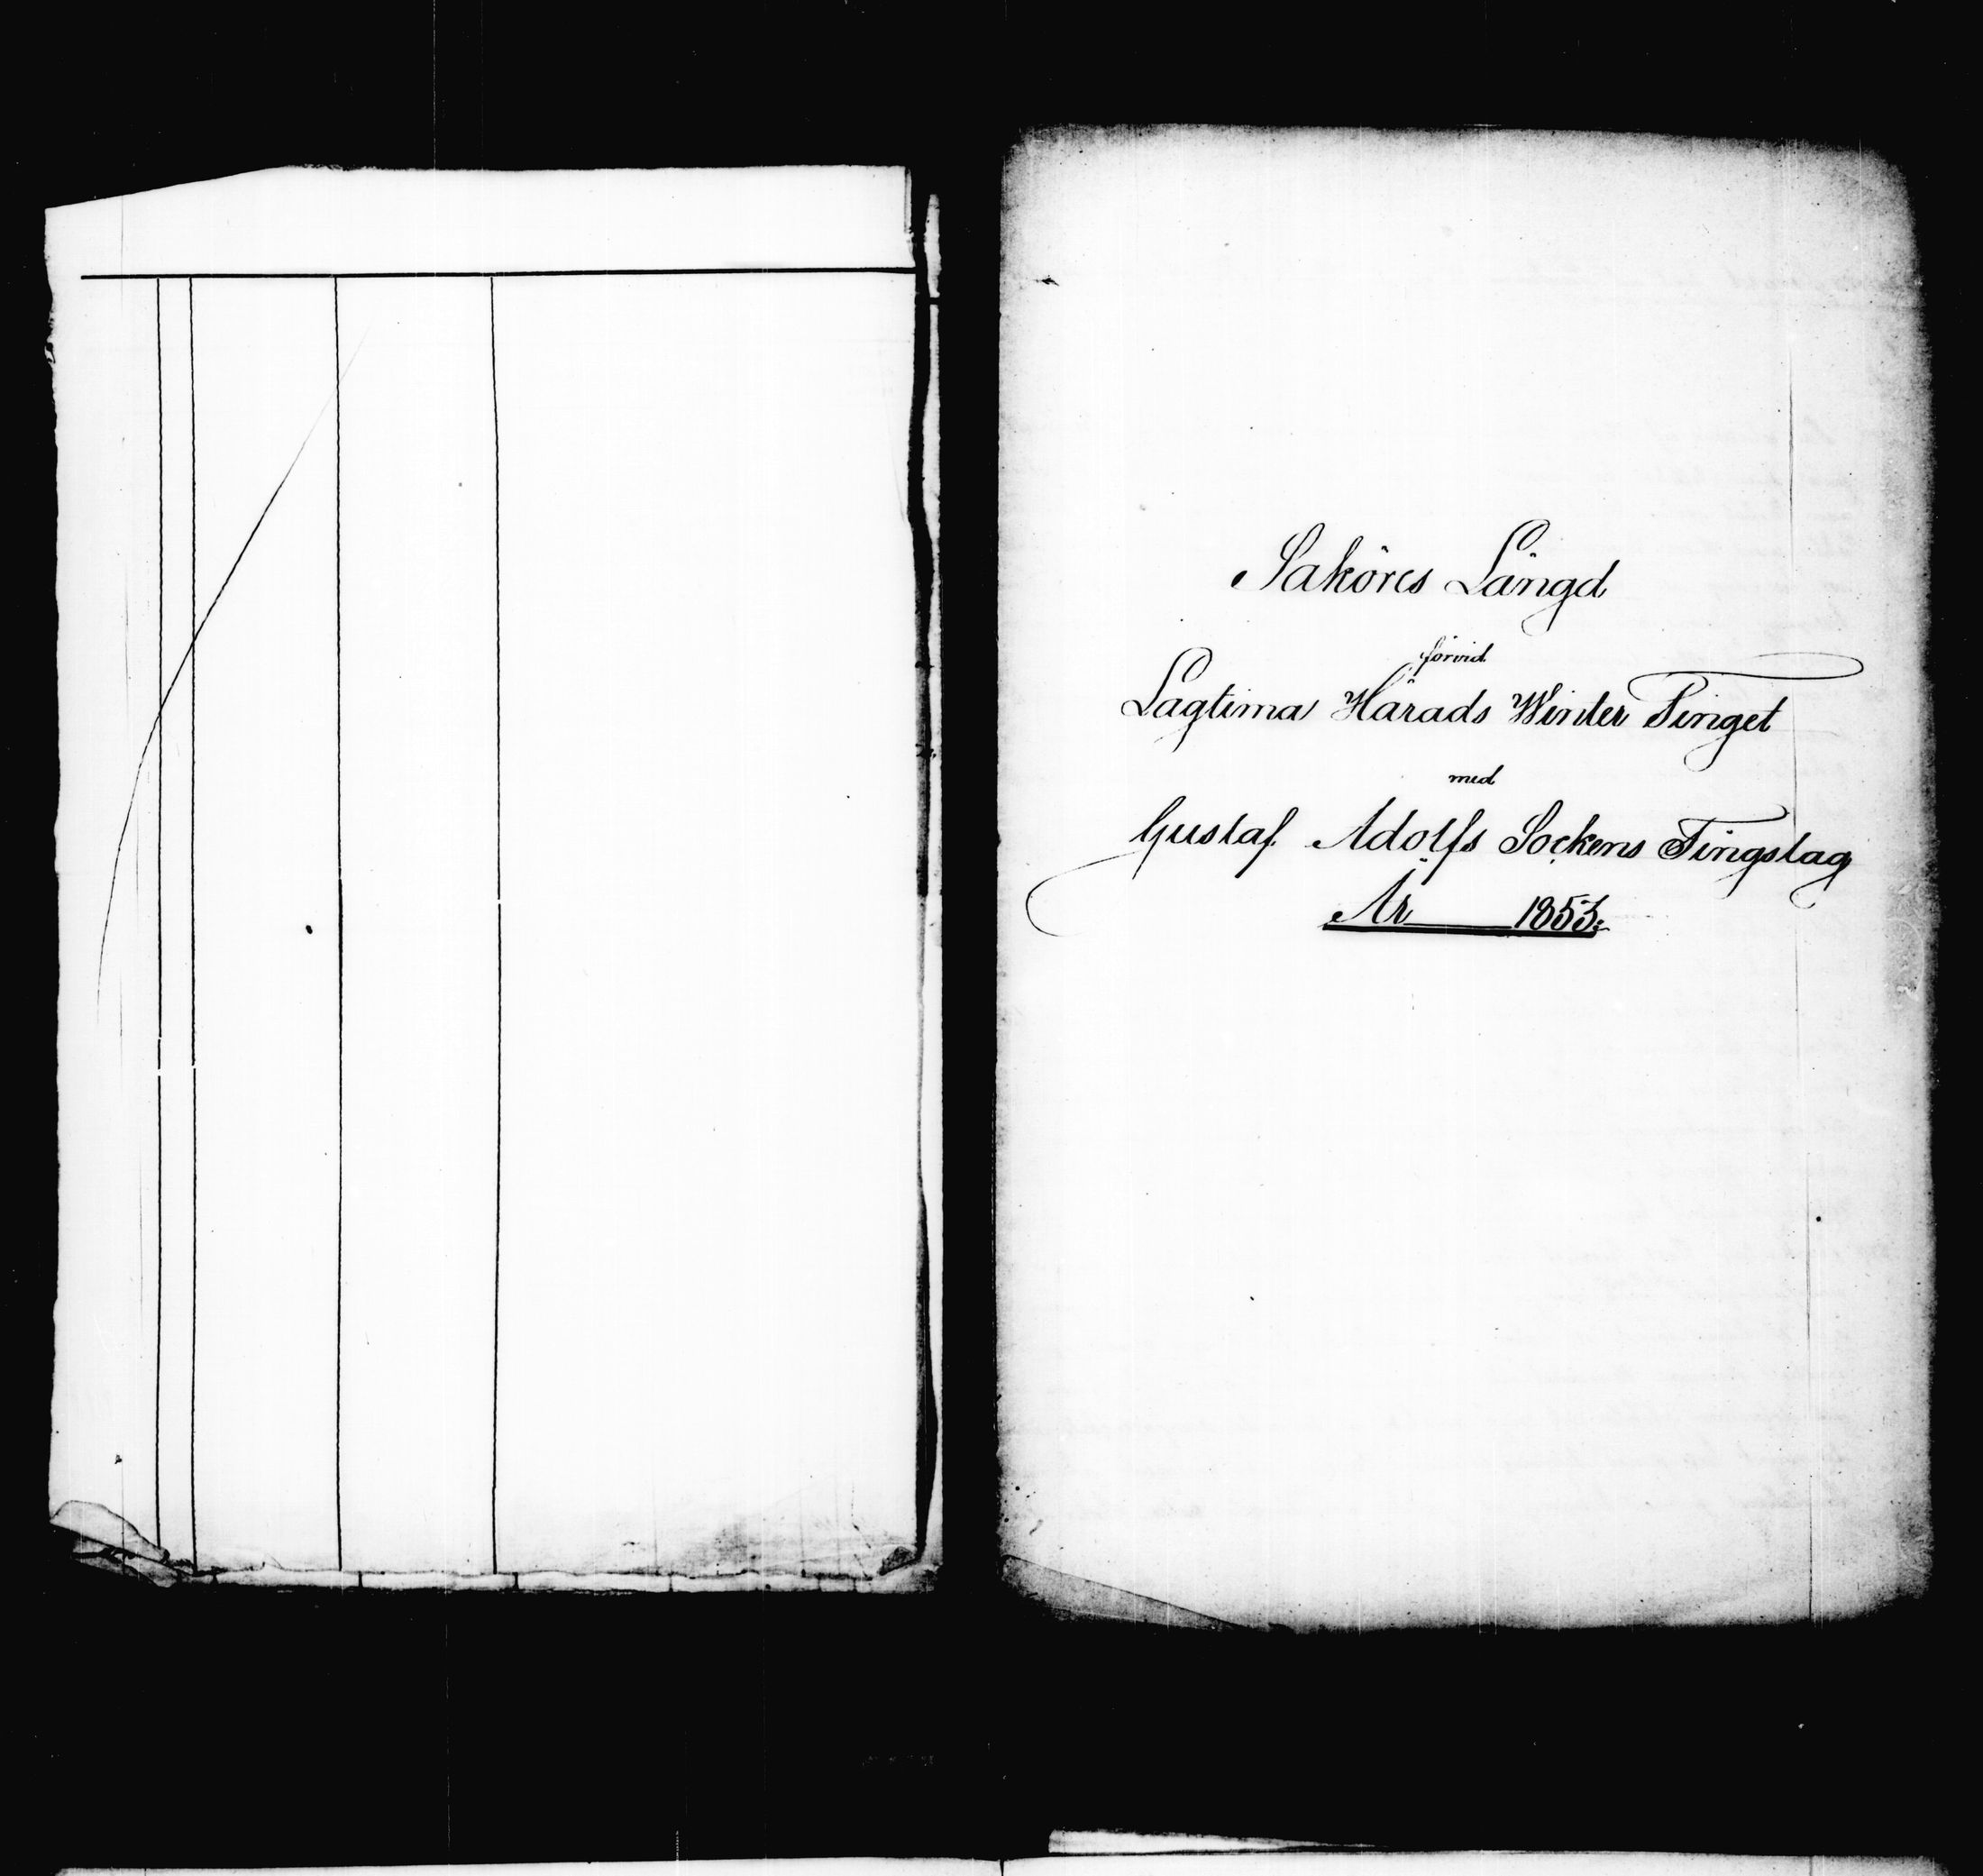 Saköres Längd
förvid
Lagtima Härads Winter Tinget
med
Gustaf Adolfs Sockens Tingslag
År 1853.